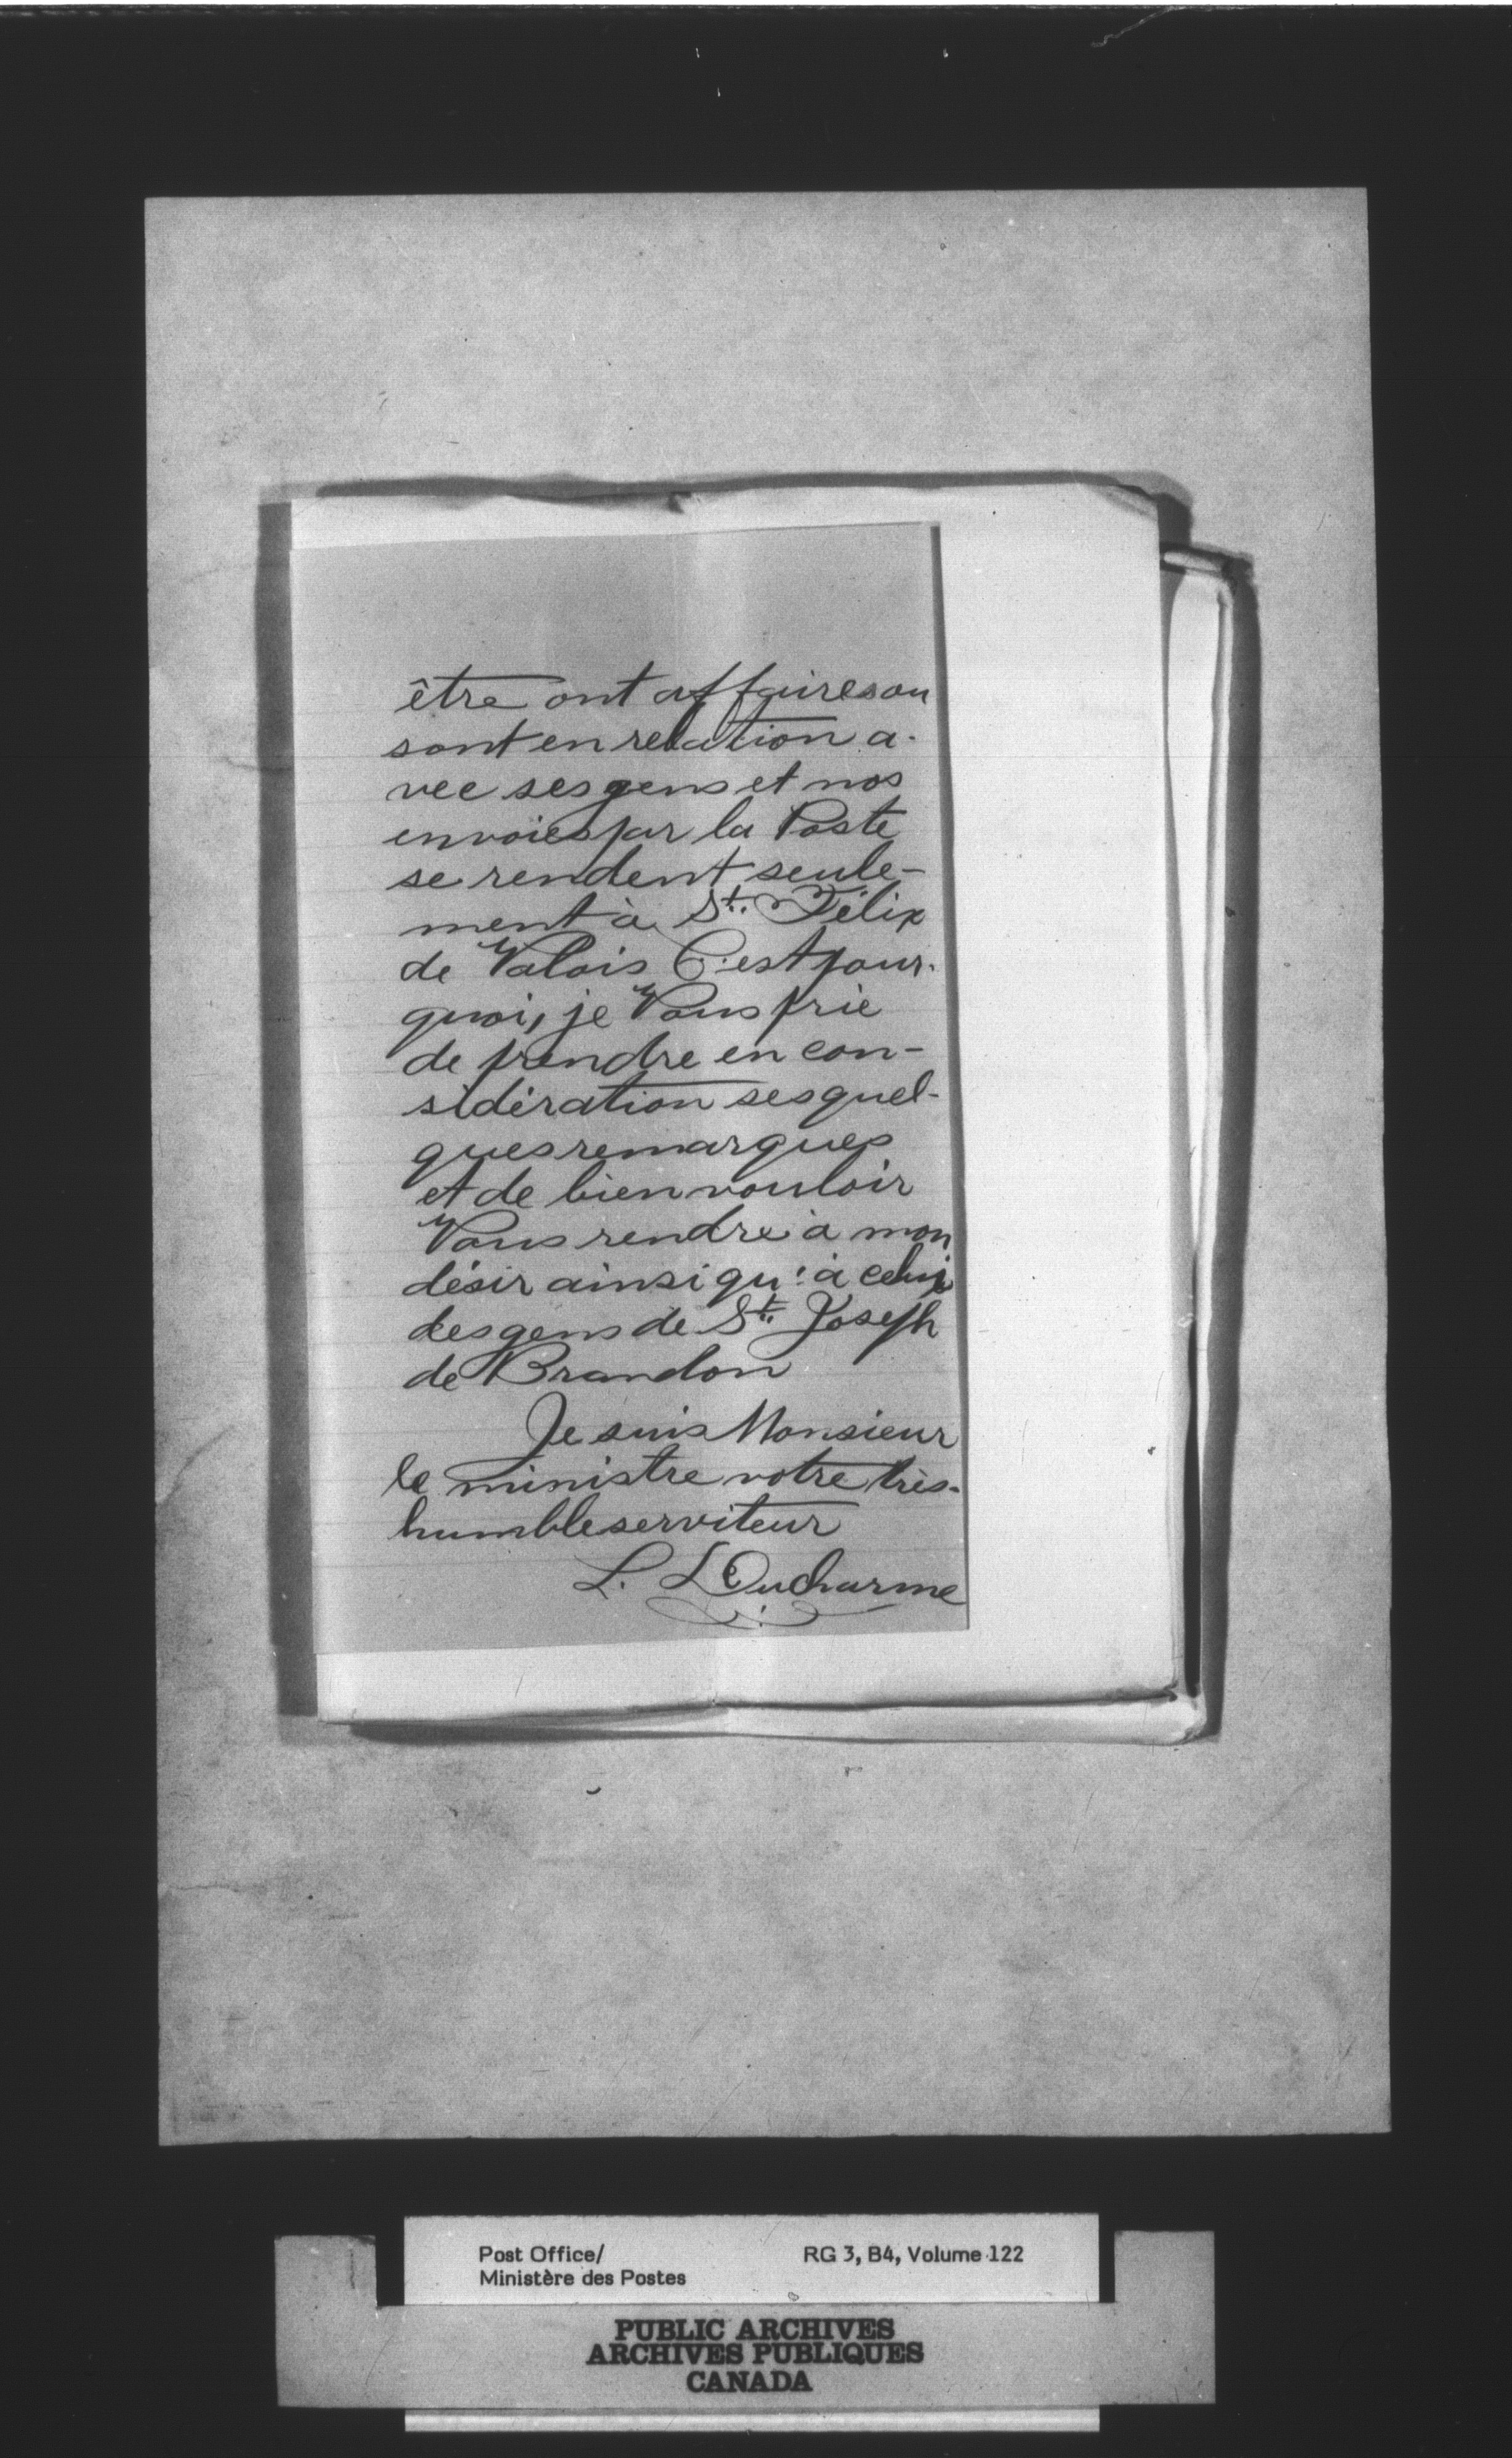 être ont affaires ou
sont en relation a-
vec ses gens et nos
envoies par la Poste
se rendent seule-
ment à St. Félix
de Valois C'est pour-
quoi, je Vous prie
de prendre en con-
sidération ses quel-
ques remarques
et de bien vouloir
Vous rendre à mon
désir ainsi qu'à celui
des gens de St. Joseph
de Brandon
Je suis Monsieur
le ministre votre très-
humble serviteur
L. L Ducharme
Post Office/ RG 3, B4, Volume 122
Ministère des Postes
PUBLIC ARCHIVES
ARCHIVES PUBLIQUES
CANADA